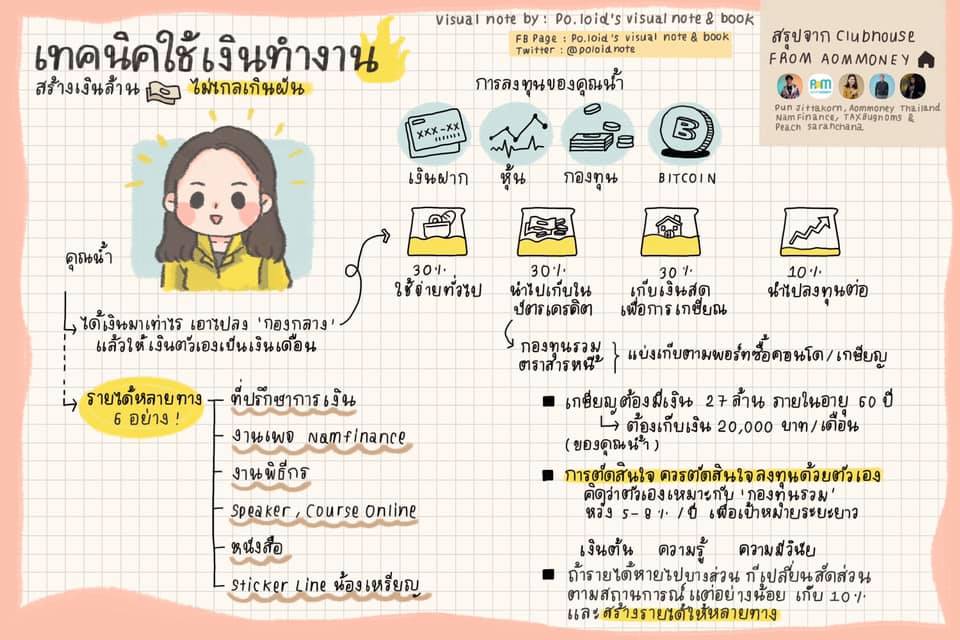 Visual note by : Po.loid's visual note & book
FB Page : Po.loid's visual note & book
Twitter : @poloidnote
สรุปจาก Clubhouse
FROM AOMMONEY
Pun Jittakorn, Aommoney Thailand
NamFinance, TAXBugnoms &
Peach Saranchana
เทคนิคใช้เงินทำงาน
สร้างเงินล้าน ไม่ไกลเกินฝัน
การลงทุนของคุณน้ำ
XXX-XX
เงินฝาก หุ้น กองทุน BITCOIN
คุณน้ำ
30% 30% 30% 10%
ใช้จ่ายทั่วไป
นำไปเก็บใน
บัตรเครดิต
เก็บเงินสด
เพื่อการเกษียณ
นำไปลงทุนต่อ
ได้เงินมาเท่าไร เอาไปลง 'กองกลาง'
แล้วให้เงินตัวเองเป็นเงินเดือน
กองทุนรวม
ตราสารหนี้
แบ่งเก็บตามพอร์ทซื้อคอนโด/เกษียญ
รายได้หลายทาง
6 อย่าง !
ที่ปรึกษาการเงิน
งานเพจ Namfinance
งานพิธีกร
Speaker, Course Online
หนังสือ
Sticker Line น้องเหรียญ
เกษียญต้องมีเงิน 27 ล้าน ภายในอายุ 60 ปี
ต้องเก็บเงิน 20,000 บาท/เดือน
(ของคุณน้ำ)
การตัดสินใจ ควรตัดสินใจลงทุนด้วยตัวเอง
คิดว่าตัวเองเหมาะกับ 'กองทุนรวม'
หวัง 5-8% /ปี เพื่อเป้าหมายระยะยาว
เงินต้น ความรู้ ความมีวินัย
ถ้ารายได้หายไปบางส่วน ก็เปลี่ยนสัดส่วน
ตามสถานการณ์ แต่อย่างน้อย เก็บ 10%
และสร้างรายได้ให้หลายทาง